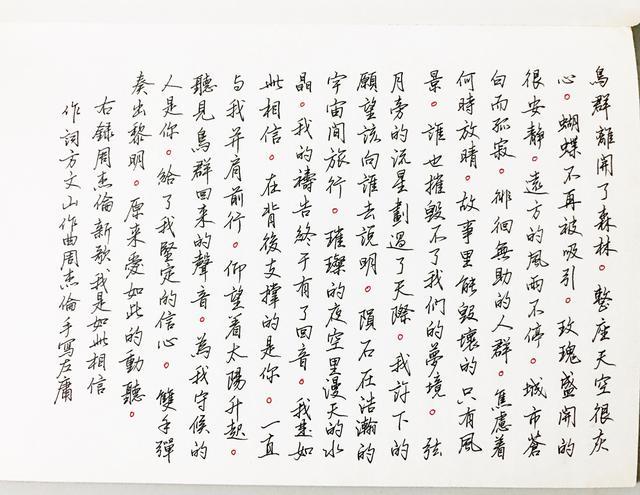 鳥群離開了森林。整座天空很灰
心。蝴蝶不再被吸引。玫瑰盛開的
很安靜。遠方的風雨不停。城市蒼
白而孤寂。徘徊無助的人群。焦慮着
何時放晴。故事里能毀壞的只有風
景。誰也摧毀不了我們的夢境。弦
月旁的流星劃過了天際。我許下的
願望該向誰去說明。隕石在浩瀚的
宇宙間旅行。璀璨的夜空里漫天的水
晶。我的禱告終于有了回音。我是如
此相信。在背後支撐的是你。一直
与我并肩前行。仰望着太陽升起。
聽見鳥群回來的聲音。為我守候的
人是你。給了我堅定的信心。雙手彈
奏出黎明。原來愛如此的動聽。
右錄周杰倫新歌我是如此相信
作詞方文山作曲周杰倫手寫左庸